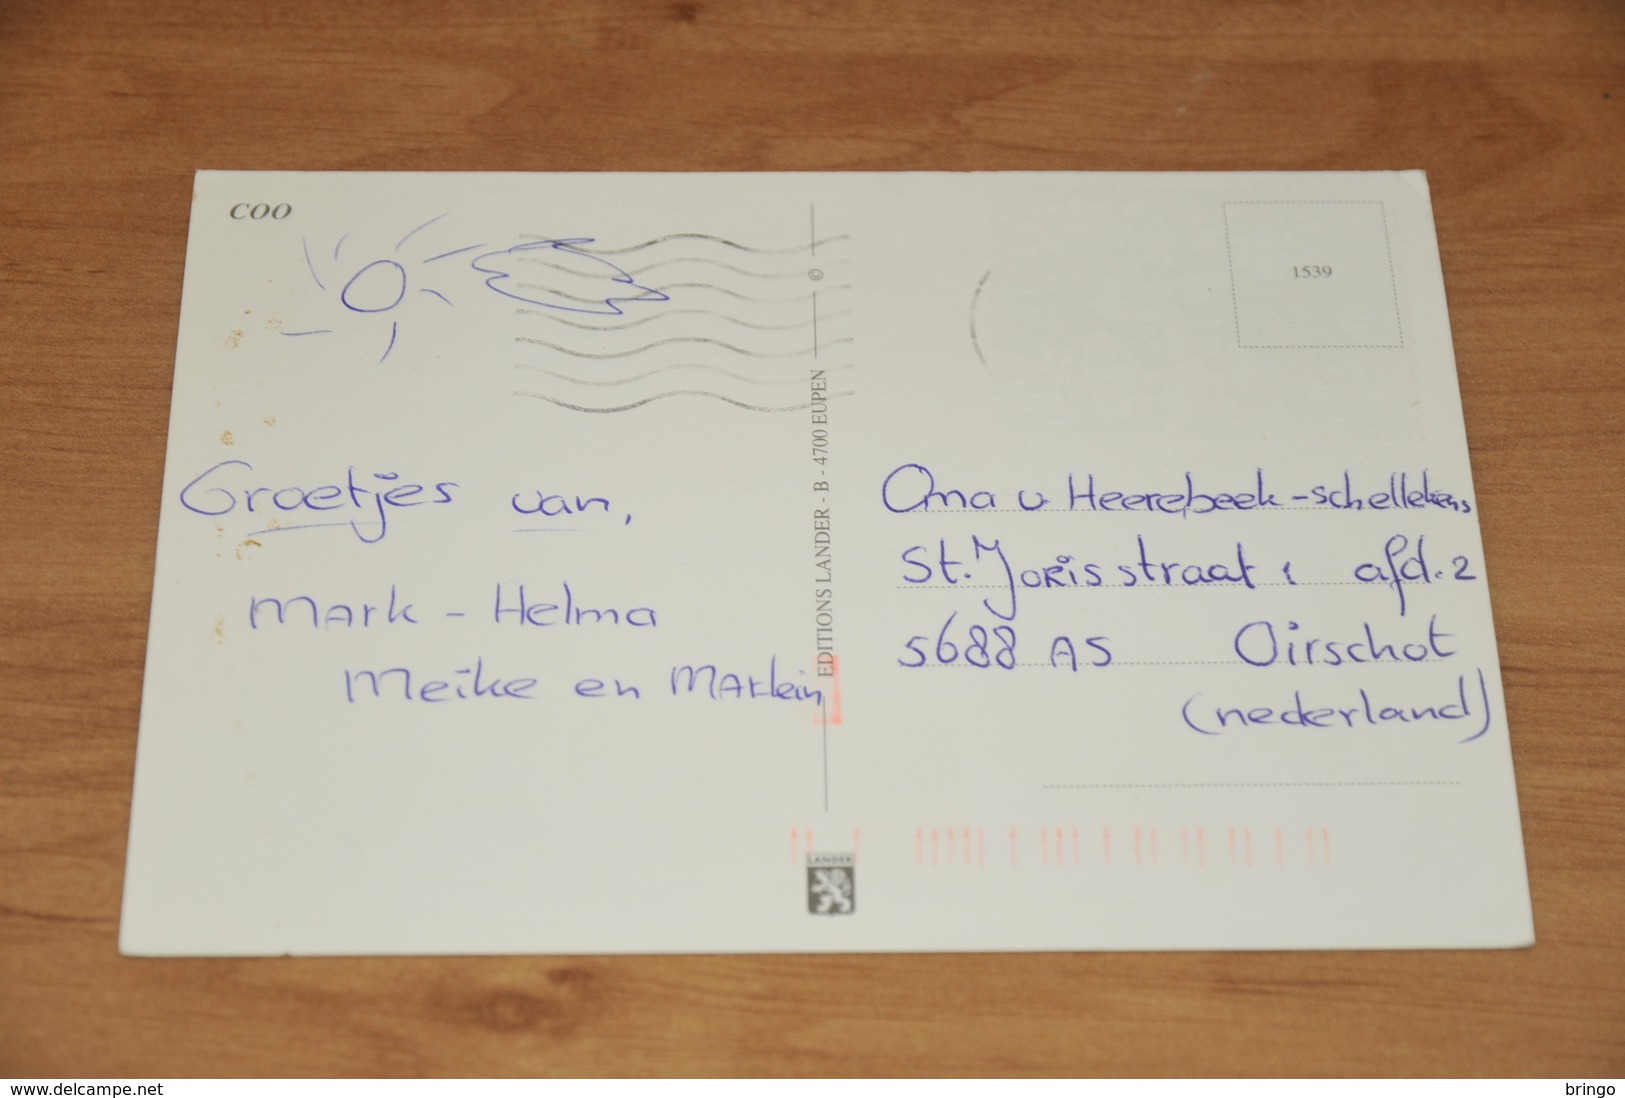 COO
Groetjes van,
Mark - Helma
Meike en Marlein
© EDITIONS LANDER - B - 4700 EUPEN
1539
Oma v Heerebeek - schellekens
St. Jorisstraat 1 afd. 2
5688 AS Oirschot
(nederland)
LANDER
www.delcampe.net
bringo